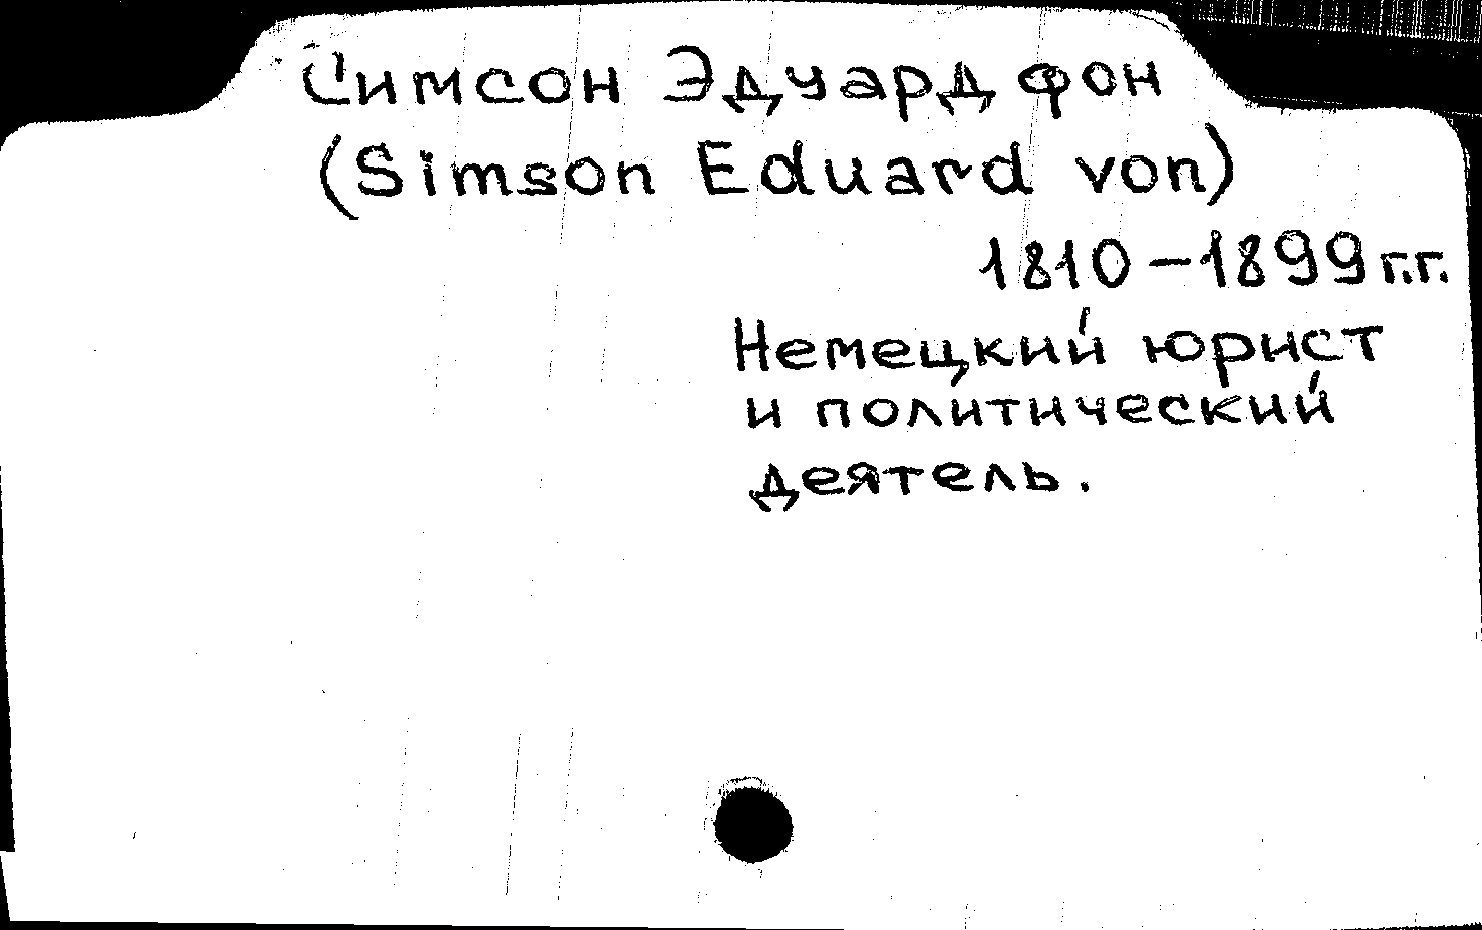 Симсон Эдуард фон
(Simson Eduard von)
1810-1899 г.г.
Немецкий юрист
и политический
деятель.